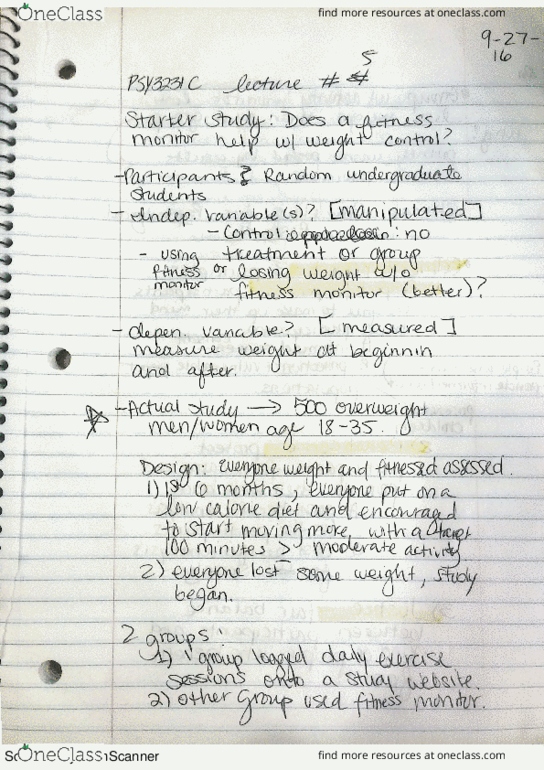 OneClass
find more resources at oneclass.com
9-27-
16
5
PSY3231C lecture #
Starter study: Does a fitness
monitor help w/ weight control?
- Participants? Random undergraduate
students
- Indep. variable(s)? [manipulated]
- Control : no
- using treatment or group
fitness or losing weight w/o
monitor fitness monitor (better)?
- depen. variable? [measured]
measure weight at beginnin
and after.
- Actual study → 500 overweight
men/women age 18-35.
Design: Everyone weight and fitnessed assessed.
1) 1st 6 months, everyone put on a
low calorie diet and encouraged
to start moving more, with a target
100 minutes > moderate activity
2) everyone lost some weight, study
began.
2 groups:
1) 1 group logged daily exercise
sessions onto a study website.
2) other group used fitness monitor.
OneClass
Scanner
find more resources at oneclass.com